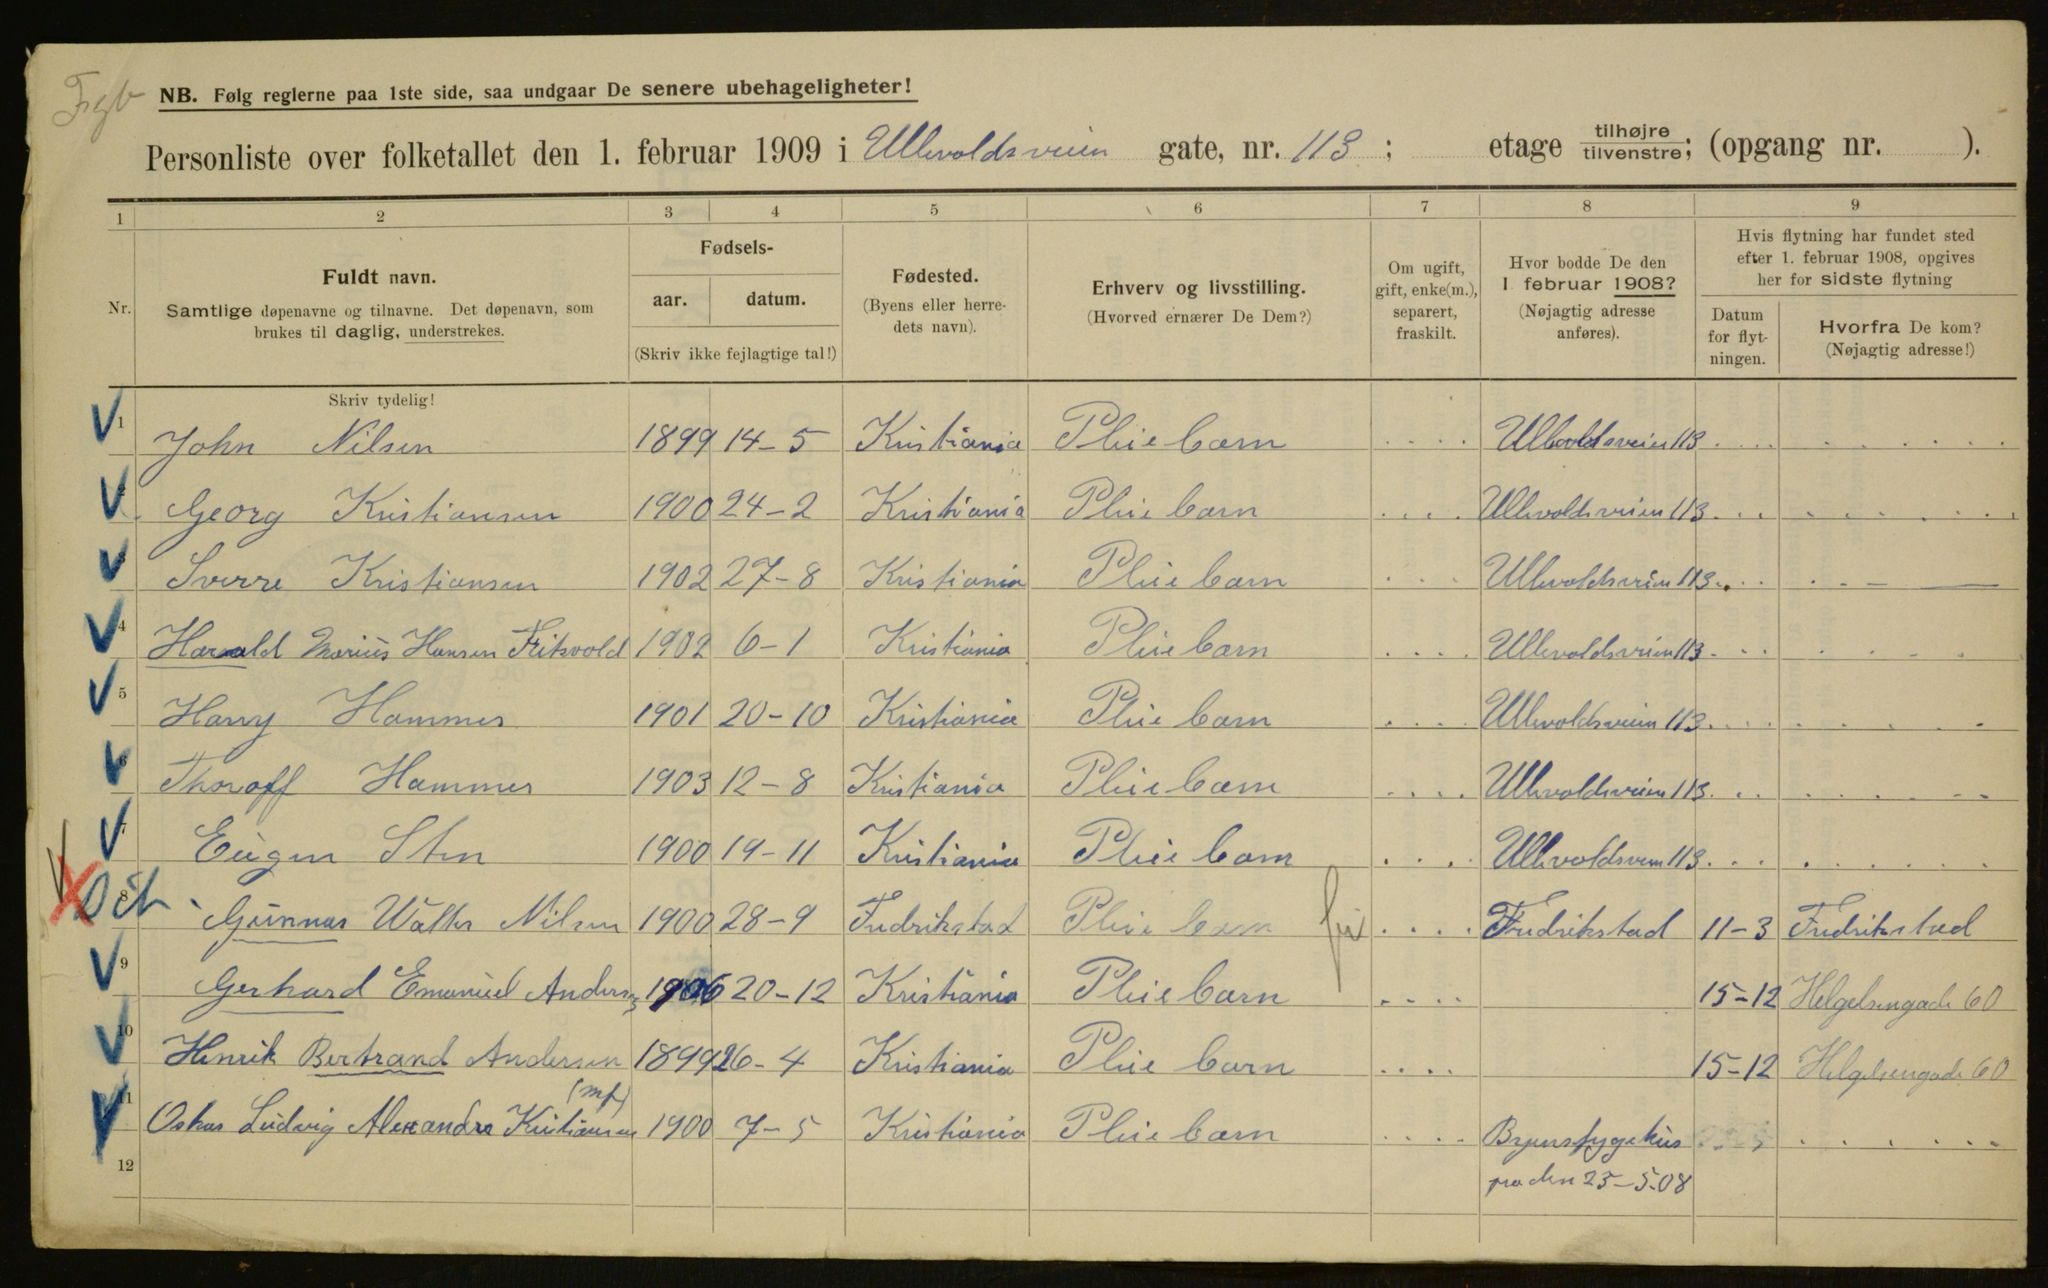 Fgb
NB. Følg reglerne paa 1ste side, saa undgaar De senere ubehageligheter!
Personliste over folketallet den 1. februar 1909 i Ullevoldsveien gate, nr. 113; etage tilhøjre tilvenstre; (opgang nr. ).
1 2 3 4 5 6 7 8 9
Nr.
Fuldt navn.
Samtlige døpenavne og tilnavne. Det døpenavn, som
brukes til daglig, understrekes.
Fødsels-
aar. datum.
(Skriv ikke fejlagtige tal!)
Fødested.
(Byens eller herre-
dets navn).
Erhverv og livsstilling.
(Hvorved ernærer De Dem?)
Om ugift,
gift, enke(m.),
separert,
fraskilt.
Hvor bodde De den
1. februar 1908?
(Nøjagtig adresse
anføres).
Hvis flytning har fundet sted
efter 1. februar 1908, opgives
her for sidste flytning
Datum
for flyt-
ningen.
Hvorfra De kom?
(Nøjagtig adresse!)
Skriv tydelig!
1 John Nilsen 1899 14-5 Kristiania Pleiebarn Ullevoldsveien 113
2 Georg Kristiansen 1900 24-2 Kristiania Pleiebarn Ullevoldsveien 113
3 Sverre Kristiansen 1902 27-8 Kristiania Pleiebarn Ullevoldsveien 113
4 Harald Marius Hansen Fritsvold 1902 6-1 Kristiania Pleiebarn Ullevoldsveien 113
5 Harry Hammer 1901 20-10 Kristiania Pleiebarn Ullevoldsveien 113
6 Thoroff Hammer 1903 12-8 Kristiania Pleiebarn Ullevoldsveien 113
7 Eugen Sten 1900 19-11 Kristiania Pleiebarn Ullevoldsveien 113
8 Gunnar Walter Nilsen 1900 28-9 Fredrikstad Pleiebarn Fredrikstad 11-3 Fredrikstad
9 Gerhard Emanuel Anders 1906 20-12 Kristiania Pleiebarn 15-12 Helgesensgade 60
10 Henrik Bertrand Andersen 1899 26-4 Kristiania Pleiebarn 15-12 Helgesensgade 60
(mp)
11 Oskar Ludvig Alexander Kristiansen 1900 7-5 Kristiania Pleiebarn Byens sygehus
fra den 25-5-08
12